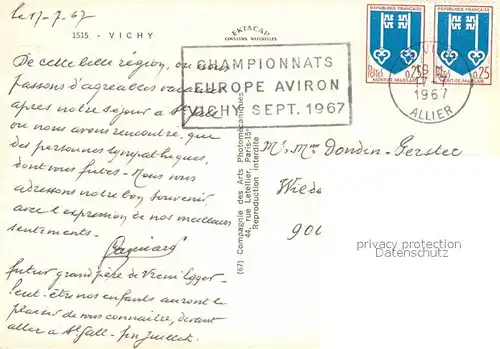 le 17-7.67
1515. - VICHY
EKTACAP
COULEURS NATURELLES
RÉPUBLIQUE FRANÇAISE
RÉPUBLIQUE FRANÇAISE
Postes 0,25
MONT-DE-MARSAN
Postes 0,25
MONT-DE-MARSAN
CHAMPIONNATS
EUROPE AVIRON
VICHY SEPT. 1967
VICHY
1967
ALLIER
De cette belle région, où nous
passons d'agréables vacances
après notre séjour à St Gall
où nous avons rencontré, que
des personnes sympathiques,
dont vous fûtes - Nous vous
adressons notre bon souvenir
avec l'expression de nos meilleurs
sentements.
futur grand père de Vreni Egger -
Peut-être nos enfants auront le
plaisir de vous connaître, devant
aller à St Gall - fin Juillet.
(67) Compagnie des Arts Photomécaniques
44, rue Letellier, Paris-15e
Reproduction interdite
Mr & Mme Dondin-Gerster
privacy protection
watermark